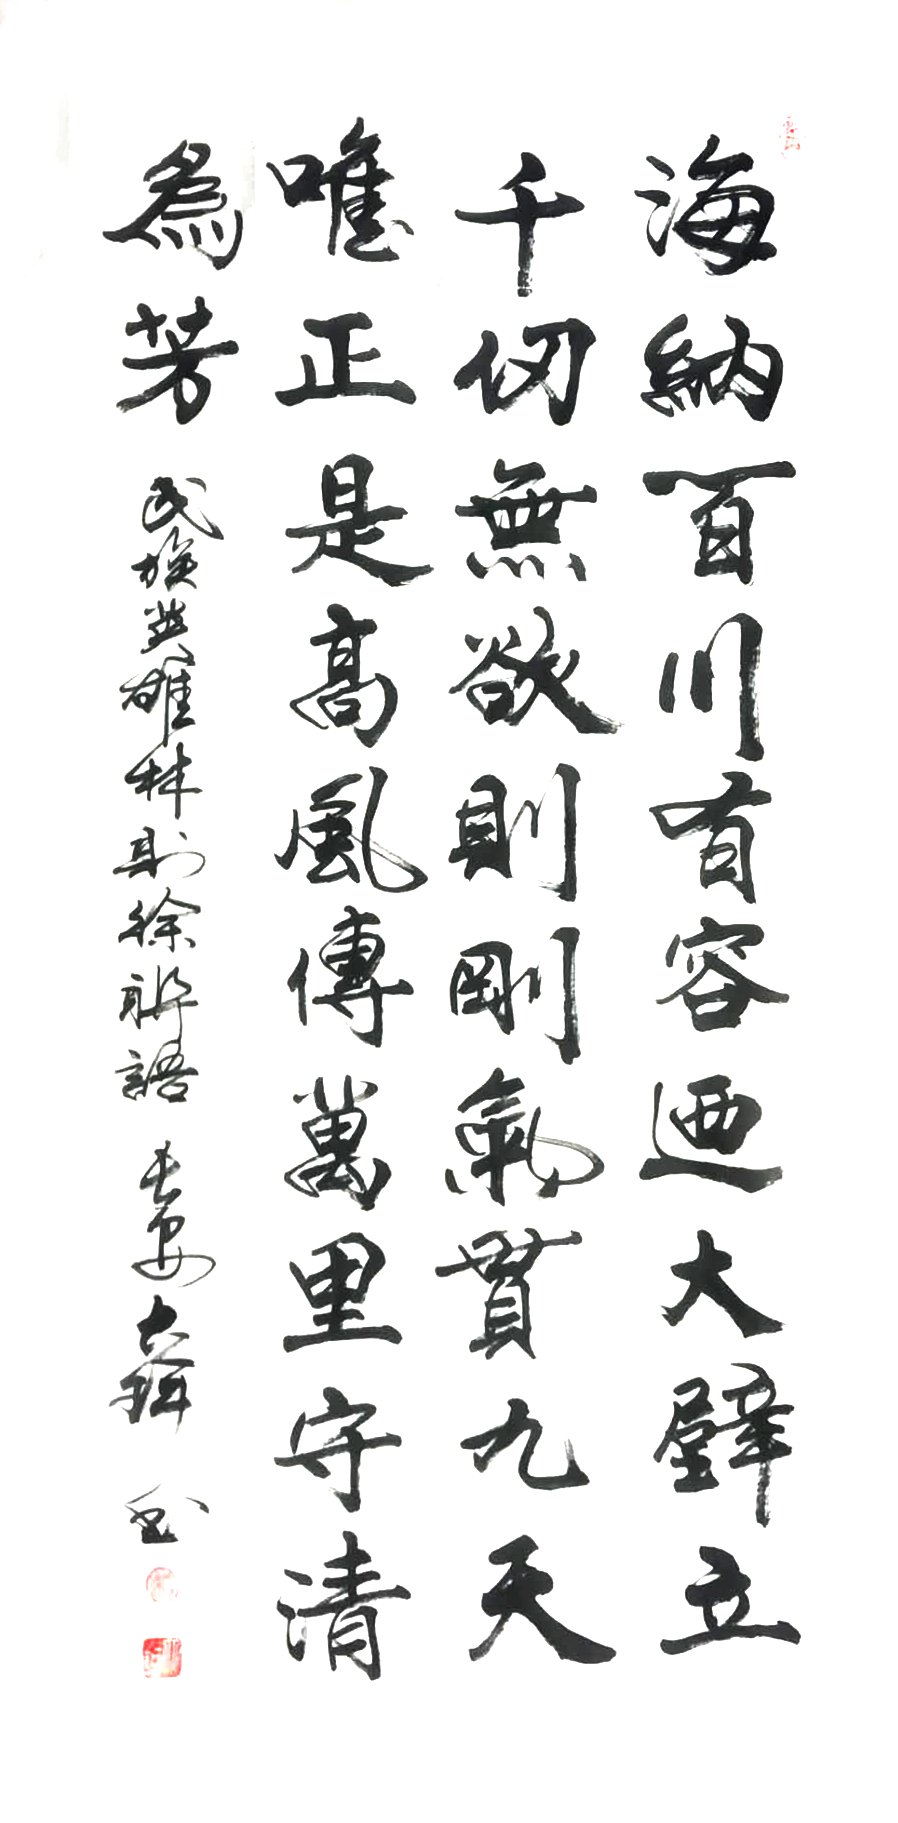 海納百川有容迺大壁立
千仞無欲則剛氣貫九天
唯正是高風傳萬里守清
為芳
民族英雄林則徐聯語
長安
書